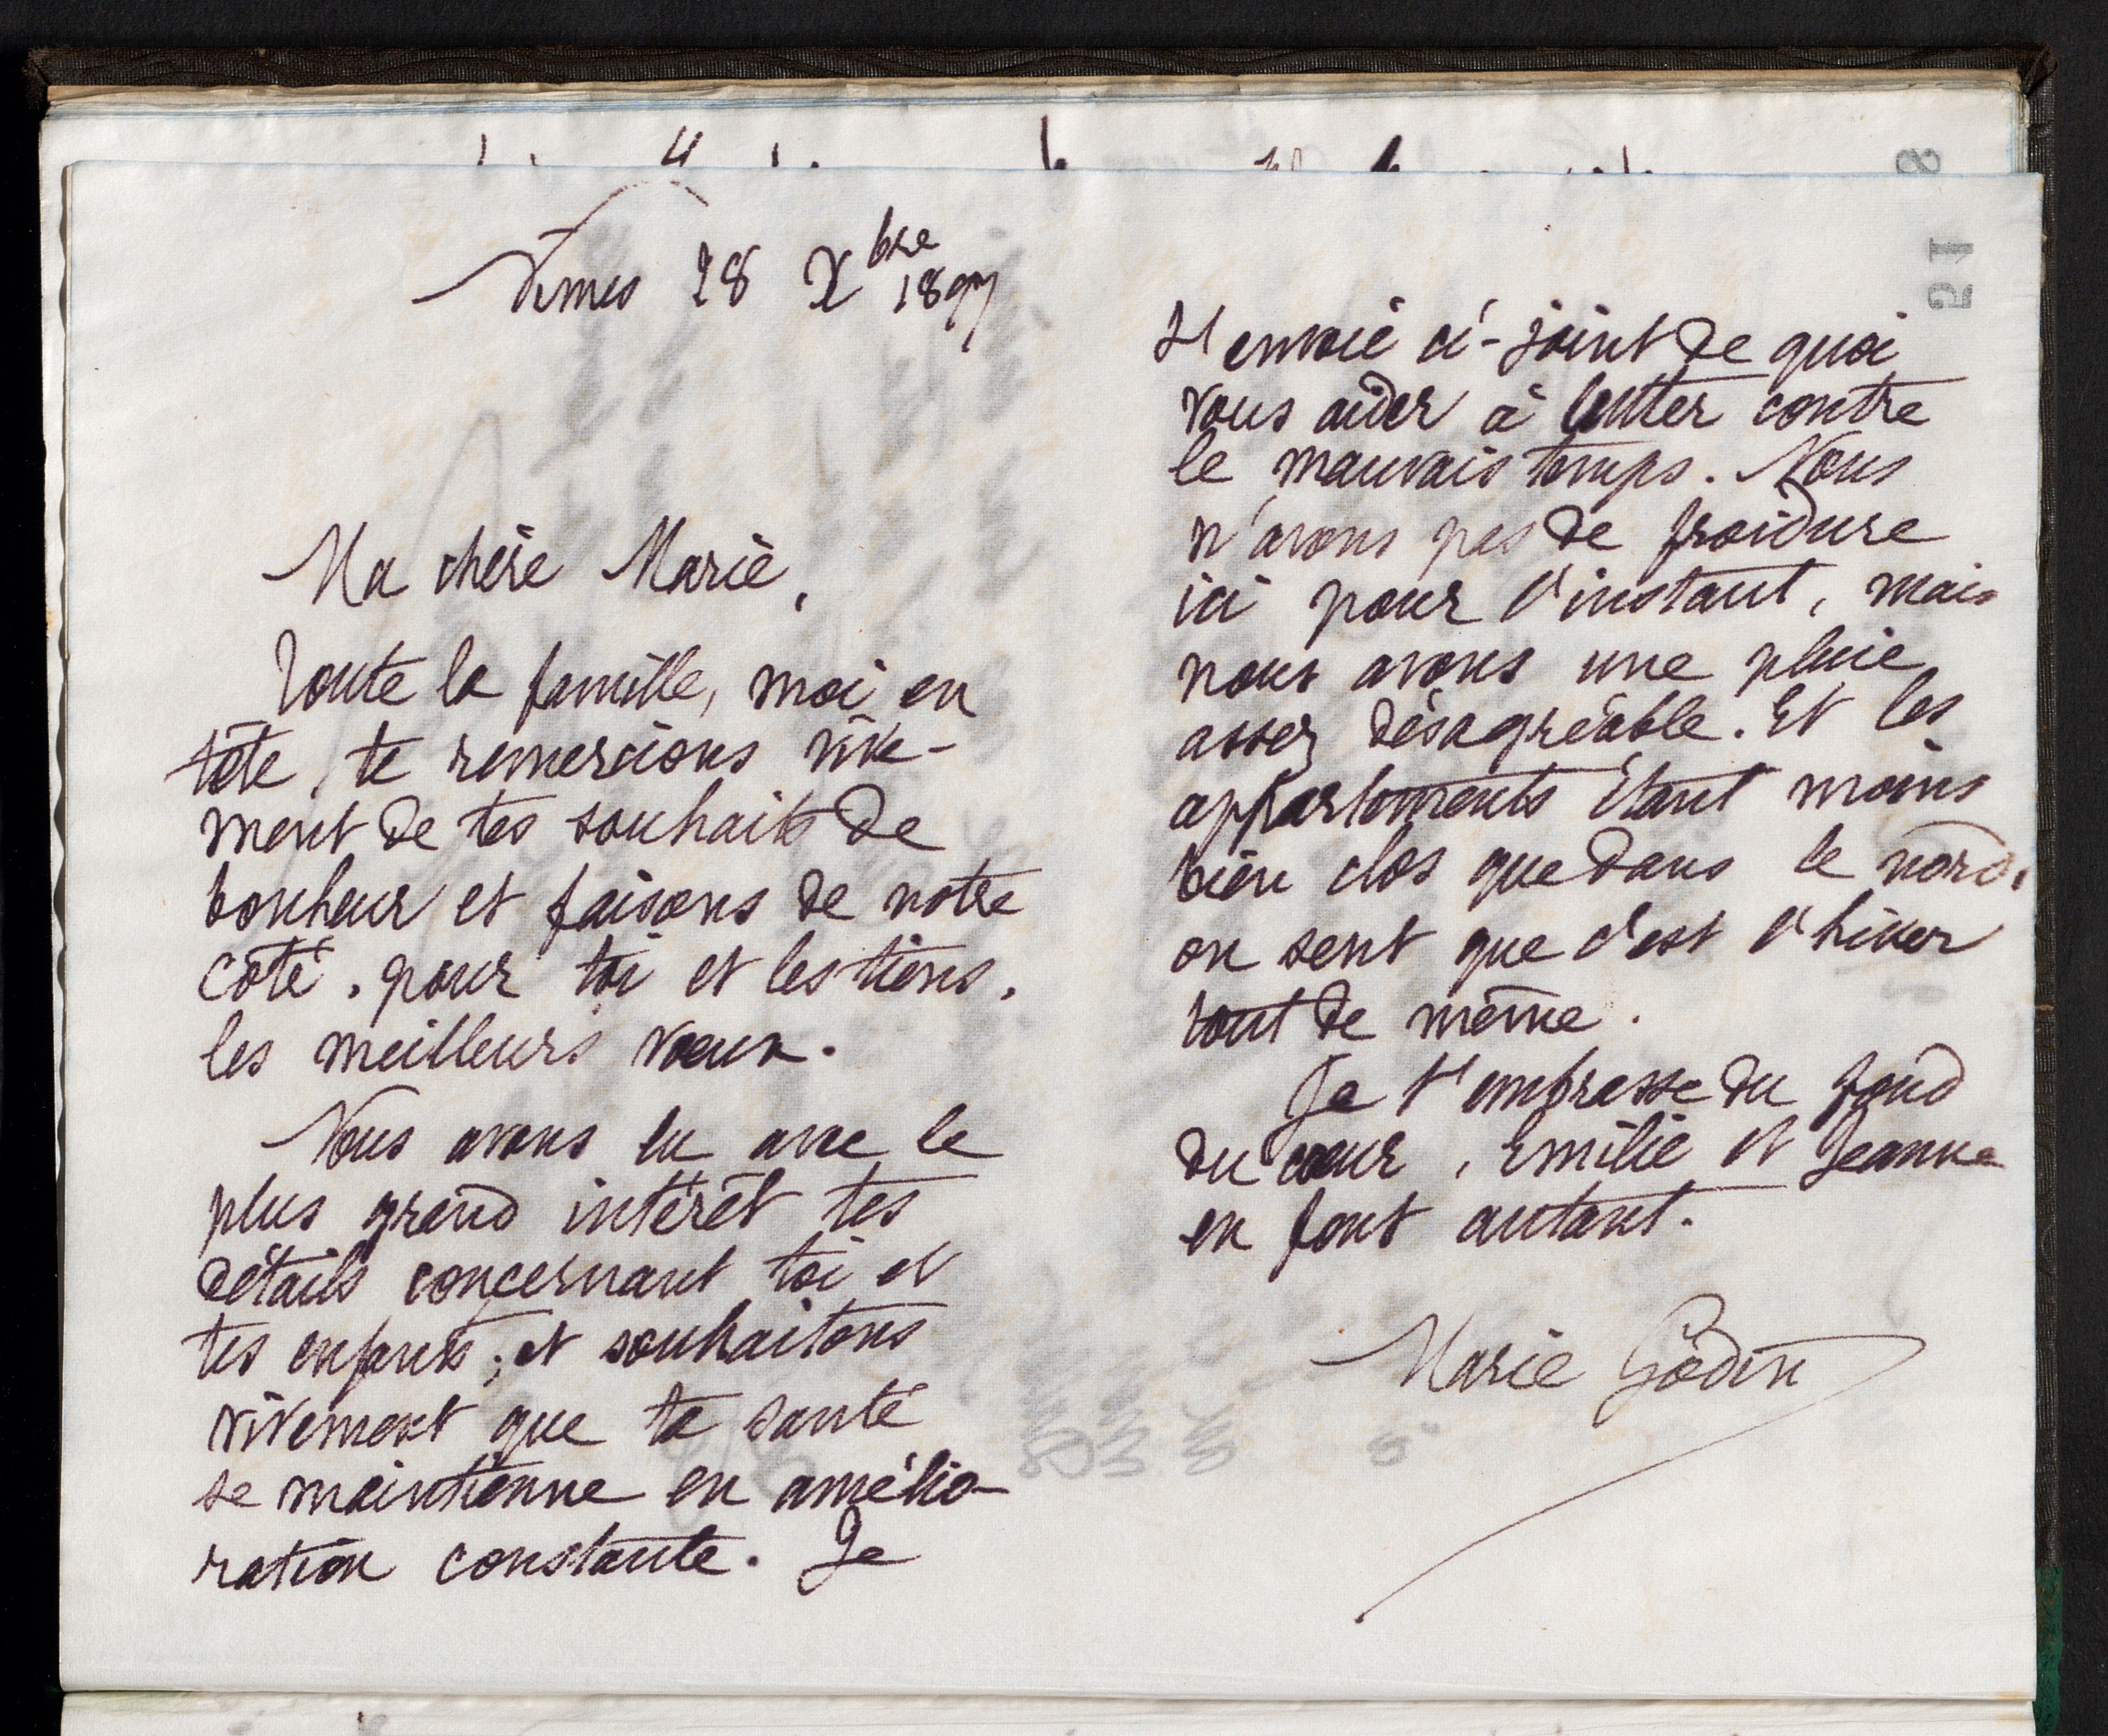 Nîmes 28 Xbre 1897
Ma chère Marie,
Toute la famille, moi en
tête, te remercions vive-
ment de tes souhaits de
bonheur et faisons de notre
côté, pour toi et les tiens,
les meilleurs vœux.
Nous avons lu avec le
plus grand intérêt tes
détails concernant toi et
tes enfants; et souhaitons
vivement que ta santé
se maintienne en amélio-
ration constante. Je
51
t'envoie ci-joint de quoi
vous aider à lutter contre
le mauvais temps. Nous
n'avons pas de froidure
ici pour l'instant, mais
nous avons une pluie
assez désagréable. Et les
appartements étant moins
bien clos que dans le nord,
on sent que c'est l'hiver
tout de même.
Je t'embrasse du fond
du cœur, Emilie et Jeanne
en font autant.
Marie Godin